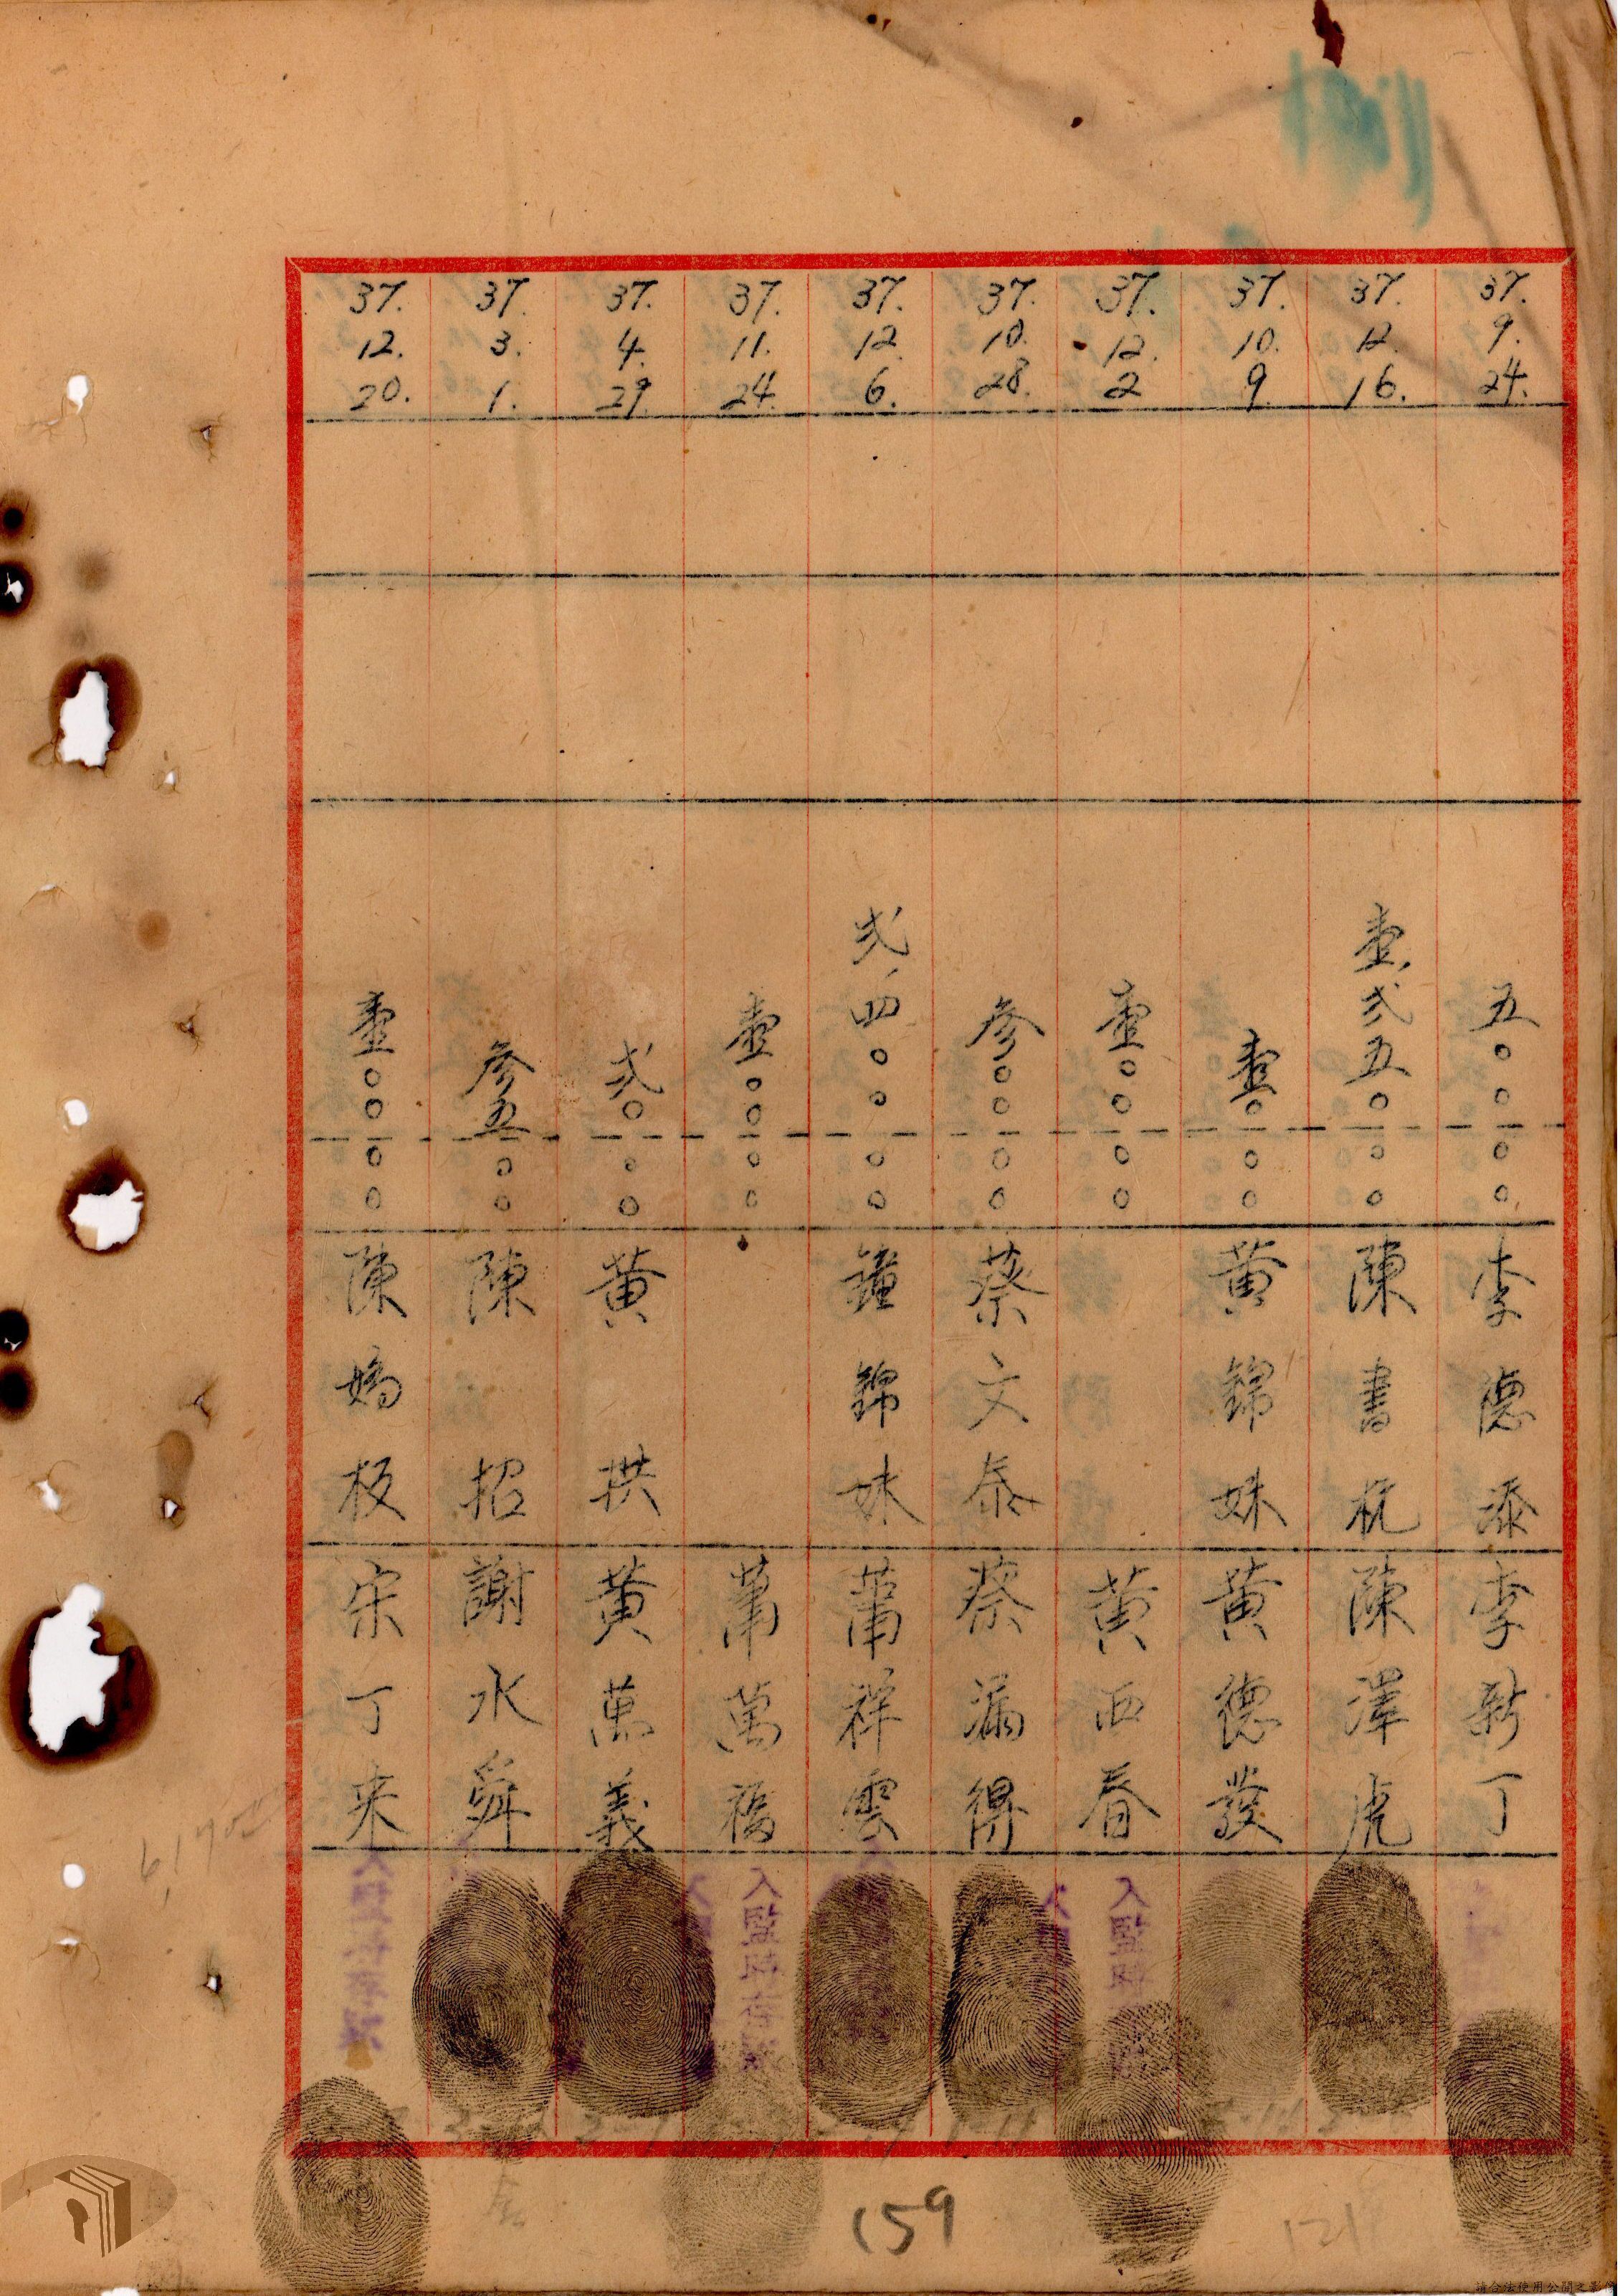 37. 9. 24. 五〇〇〇〇 李德添 李新丁
37. 12. 16. 壹,弍五〇〇〇 陳書杭 陳澤虎
37. 10. 9. 壹〇〇〇 黃錦妹 黃德發
37. 12. 2 壹〇〇〇〇 黃西春 入監時
37. 10. 28. 參〇〇〇〇 蔡文泰 蔡漏得
37. 12. 6. 弍、四〇〇〇〇 鐘錦妹 蕭祥雲
37. 11. 24. 壹〇〇〇〇 蕭萬福 入監時
37. 4. 29. 弍〇〇〇 黃拱 黃萬義
37. 3. 1. 參五〇〇 陳招 謝水舜
37. 12. 20. 壹〇〇〇〇 陳嬌板 宋丁来
159
121